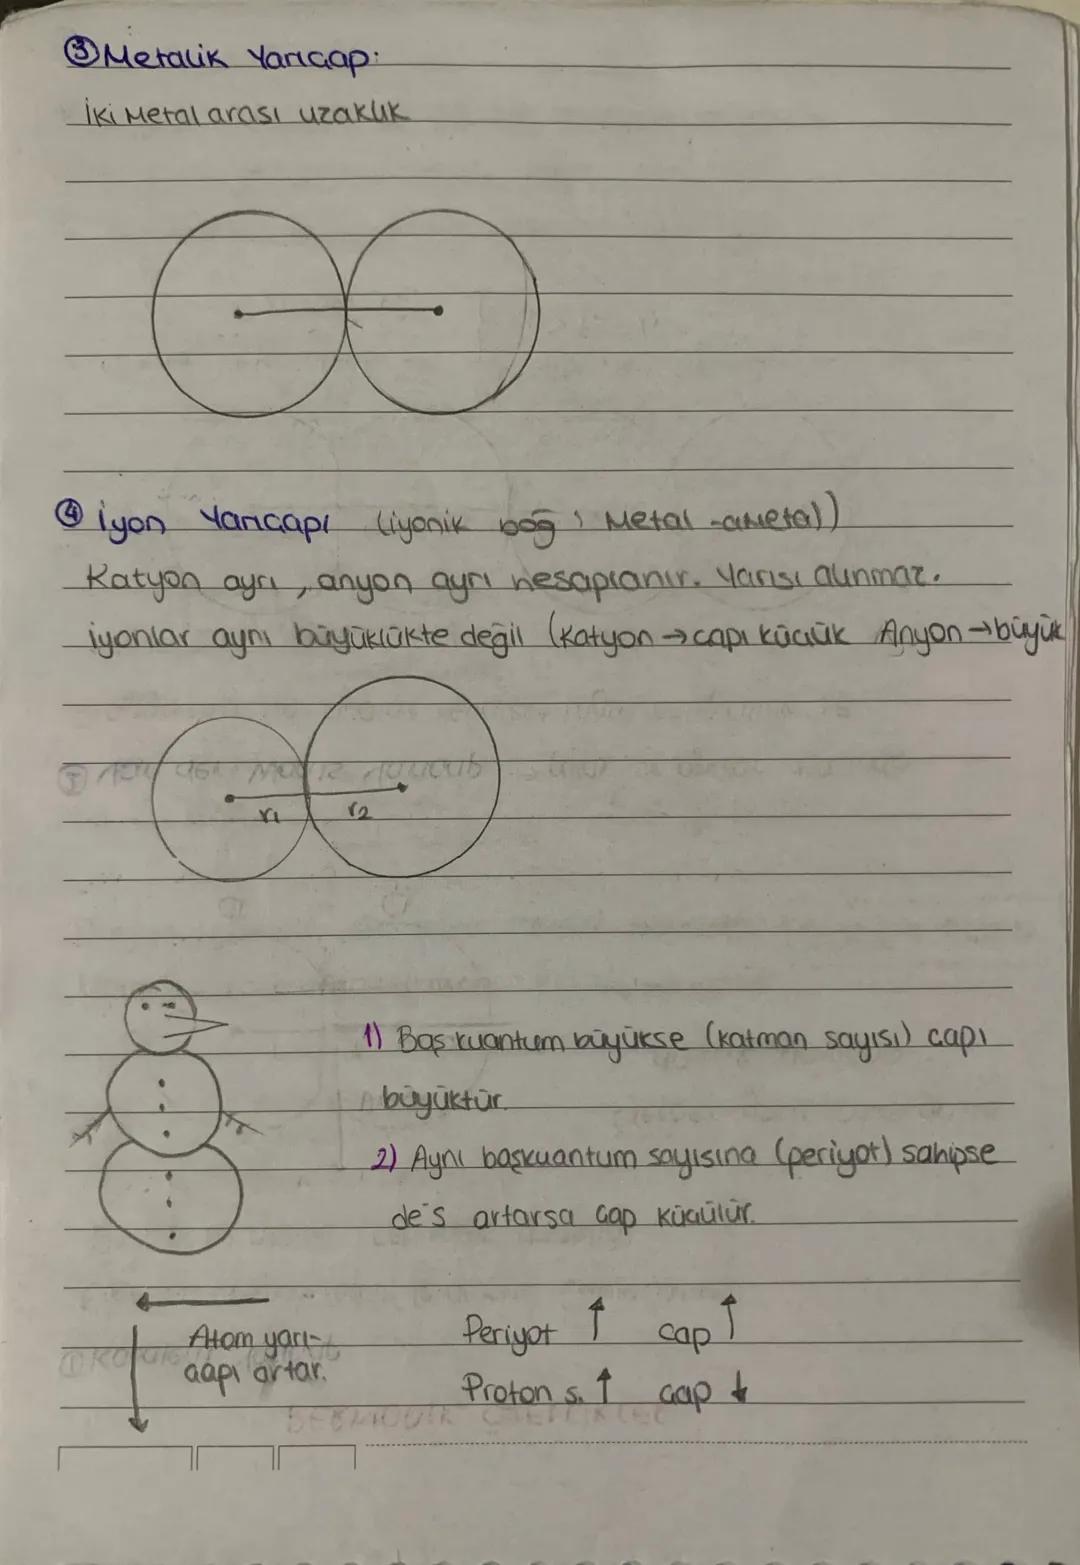 ③ Metalik Yarıçap:
İki Metal arası uzaklık
④ İyon Yarıçapı (iyonik bağ; Metal-ametal))
Katyon ayrı, anyon ayrı hesaplanır. Yarısı alınmaz.
iyonlar aynı büyüklükte değil (Katyon → çapı küçük Anyon → büyük
r1 r2
1) Baş kuantum büyükse (katman sayısı) çapı
büyüktür.
2) Aynı başkuantum sayısına (periyot) sahipse
de's artarsa çap küçülür.
Atom yarı-
çapı artar.
Periyot ↑ çap ↑
Proton s. ↑ çap ↓